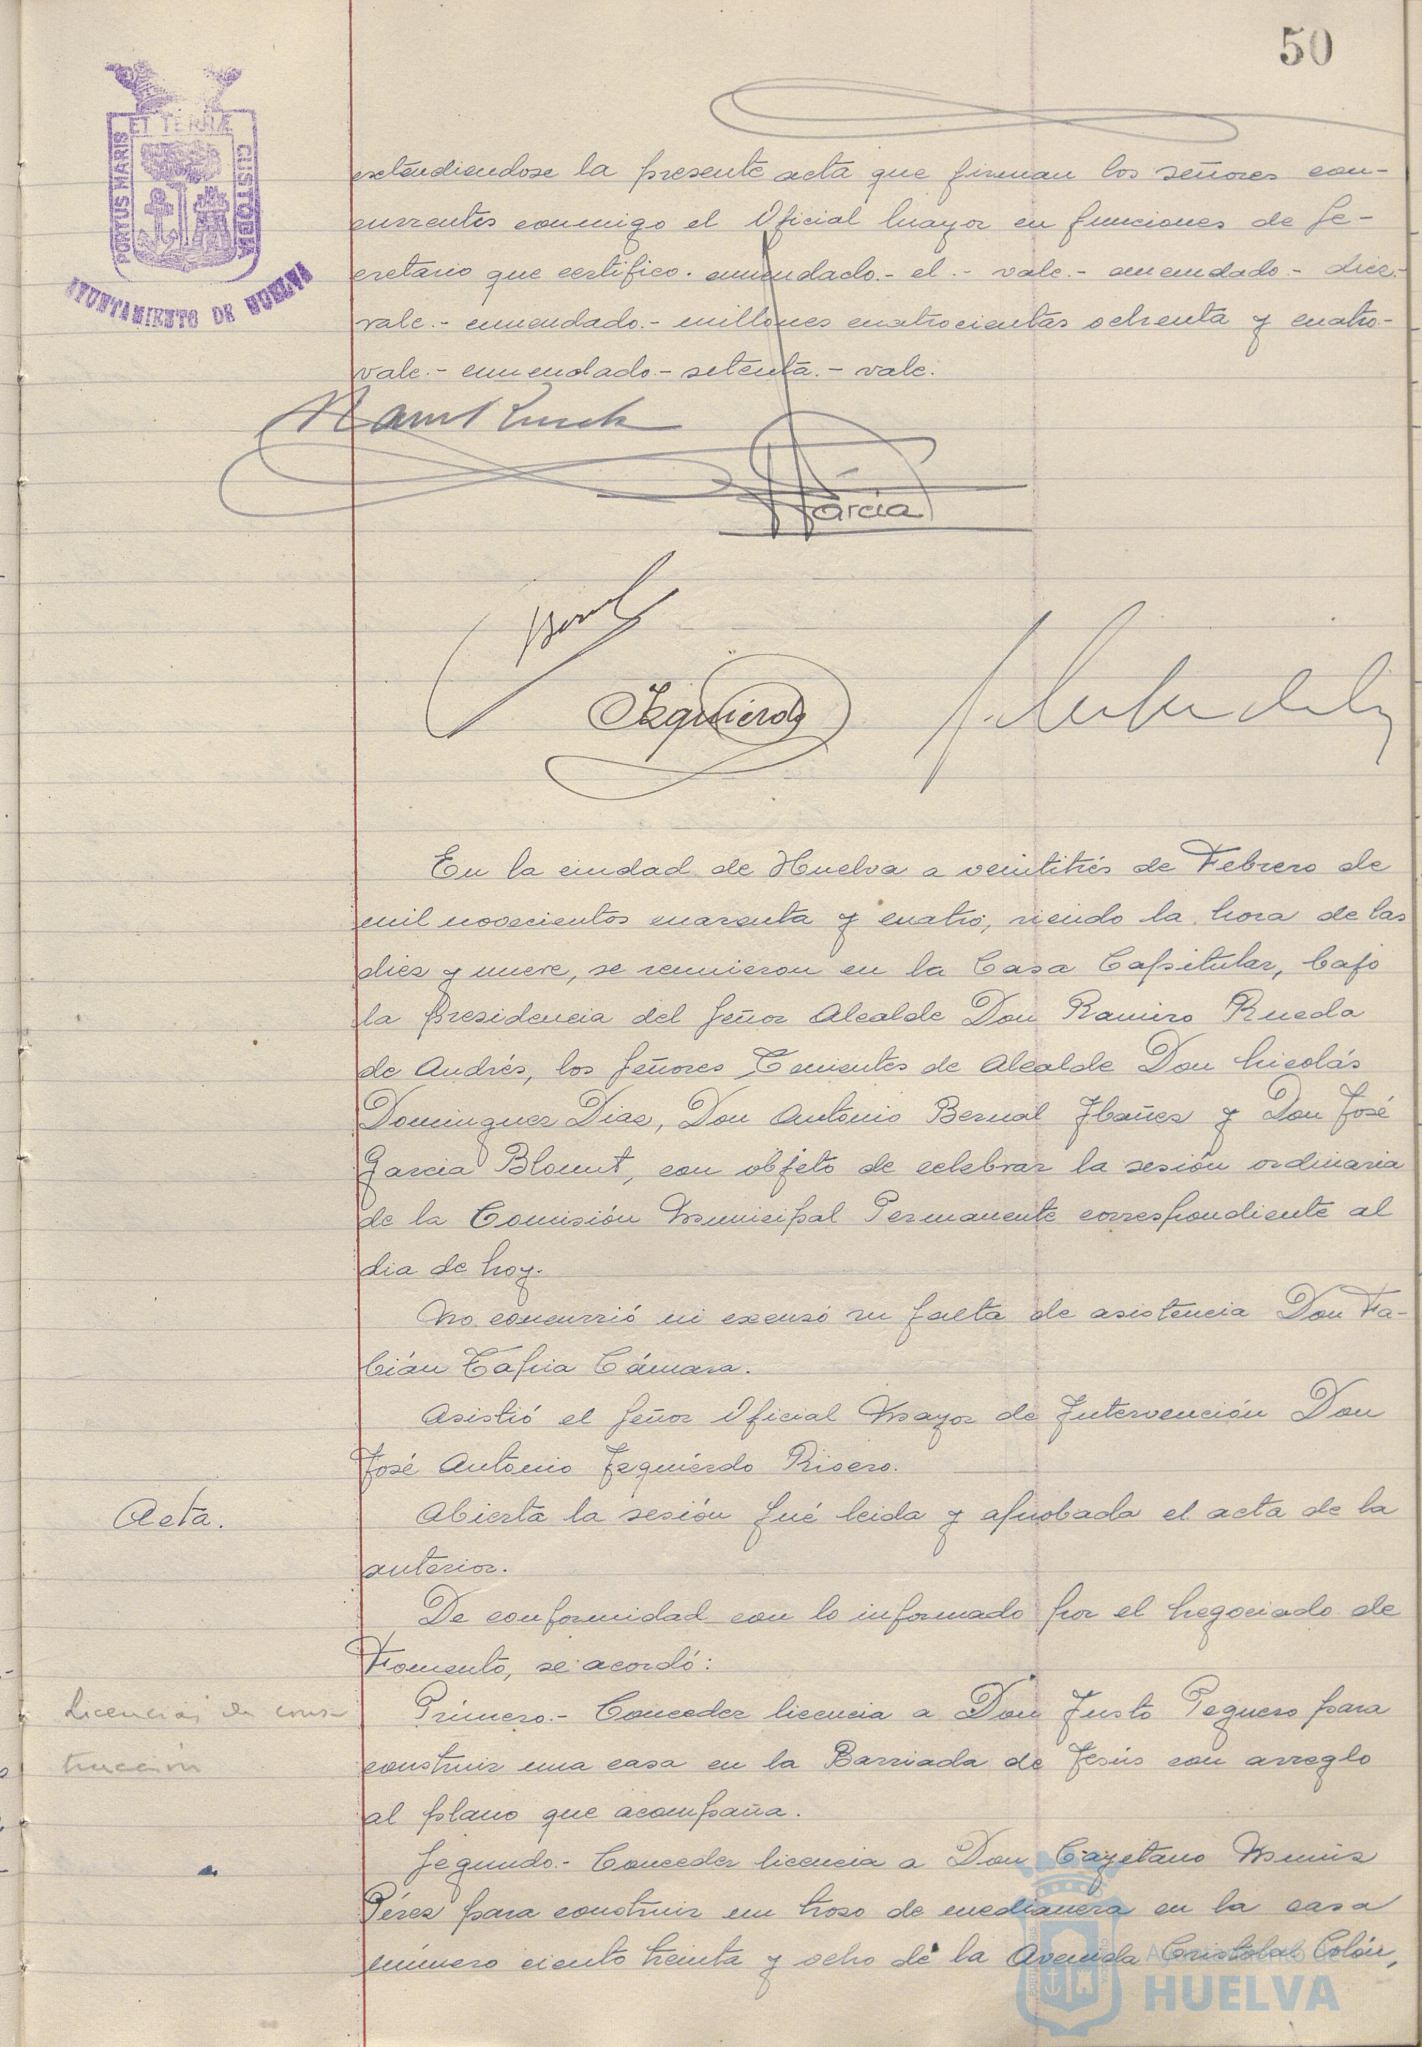 50
PORTUS MARIS ET TERRÆ CUSTODIA
AYUNTAMIENTO DE HUELVA
extendiendose la presente acta que firman los señores con-
currentes conmigo el Oficial Mayor en funciones de Se-
cretario que certifico. enmendado.- el.- vale.- enmendado.- diez.-
vale.- enmendado.- millones cuatrocientas ochenta y cuatro.-
vale.- enmendado.- setenta.- vale.
García
Izquierdo
En la ciudad de Huelva a veintitrés de Febrero de
mil novecientos cuarenta y cuatro, siendo la hora de las
diez y nueve, se reunieron en la Casa Capitular, bajo
la presidencia del Señor Alcalde Don Ramiro Rueda
de Andrés, los Señores Tenientes de Alcalde Don Nicolás
Dominguez Diaz, Don Antonio Bernal Ibañez y Don José
Garcia Blount, con objeto de celebrar la sesión ordinaria
de la Comisión Municipal Permanente correspondiente al
dia de hoy.
No concurrió ni excusó su falta de asistencia Don Fa-
bián Tapia Cámara.
Asistió el Señor Oficial Mayor de Intervención Don
José Antonio Izquierdo Rivero.
Acta.
Abierta la sesión fué leida y aprobada el acta de la
anterior.
De conformidad con lo informado por el Negociado de
Fomento, se acordó:
Licencias de cons-
trucción
Primero.- Conceder licencia a Don Justo Peguero para
construir una casa en la Barriada de Jesús con arreglo
al plano que acompaña.
Segundo.- Conceder licencia a Don Cayetano Muniz
Pérez para construir un trozo de medianera en la casa
número ciento treinta y ocho de la Avenida Cristobal Colón,
Ayuntamiento de
HUELVA